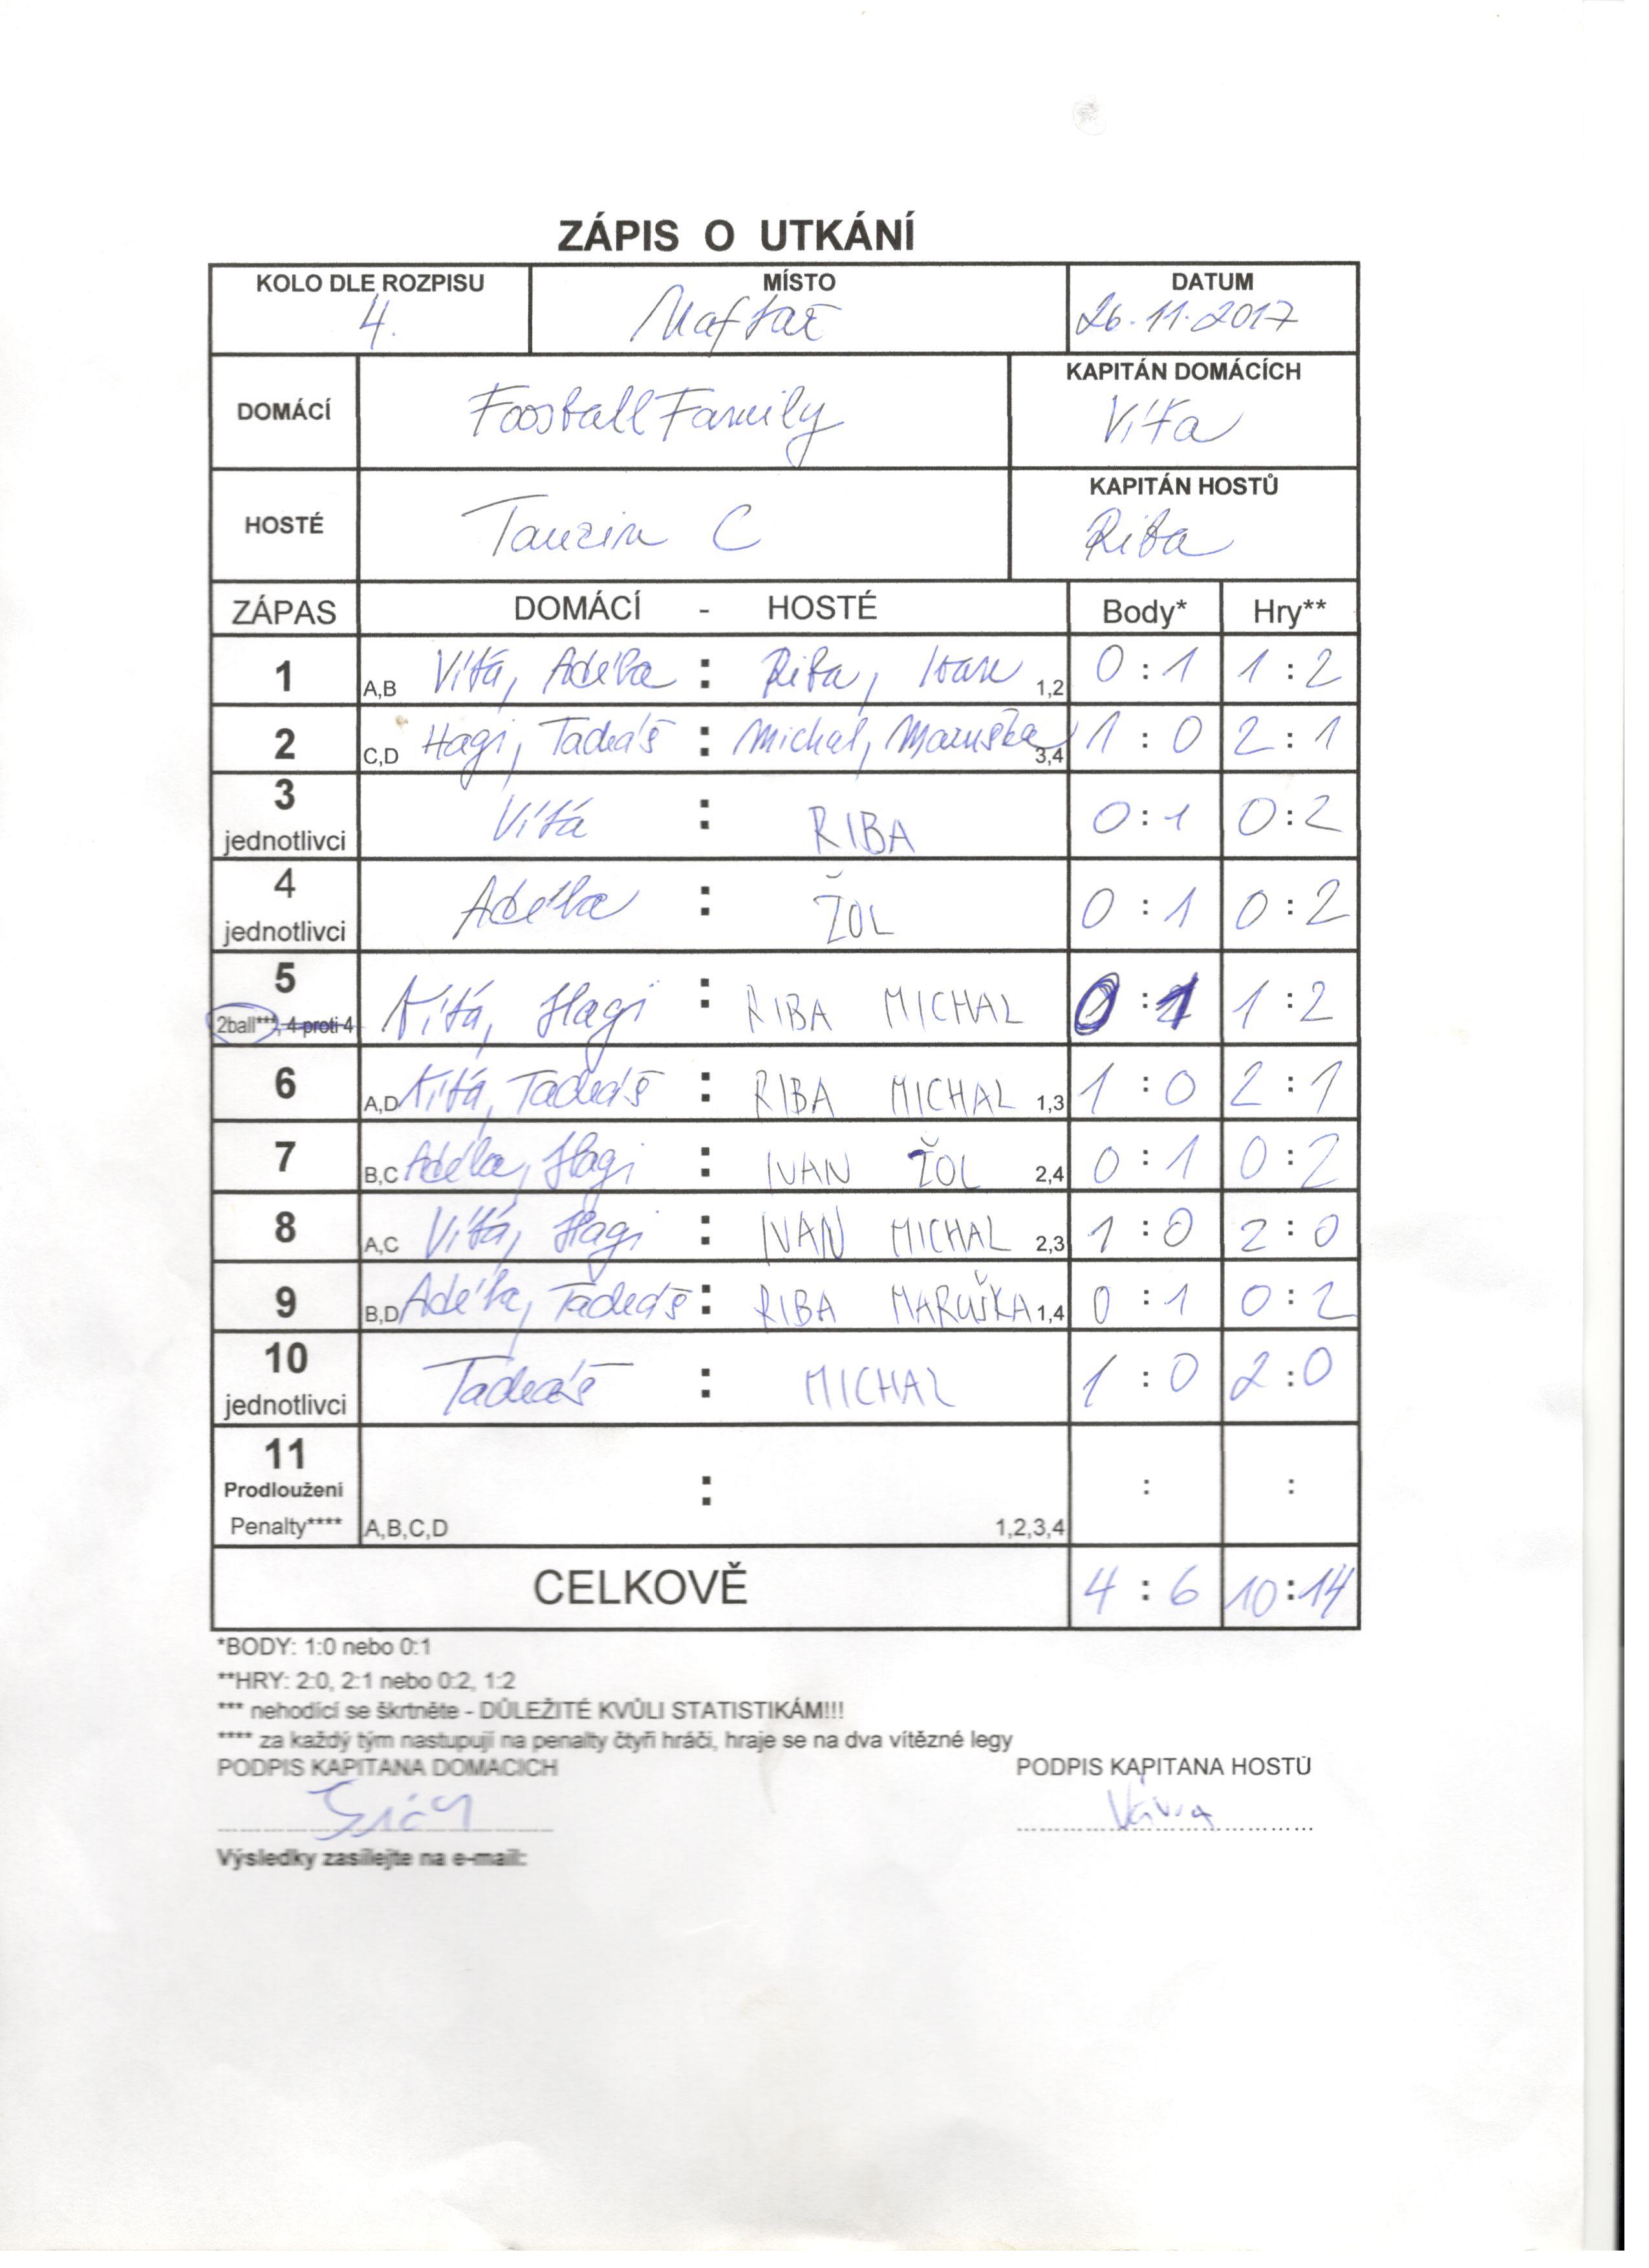 ZÁPIS O UTKÁNÍ
KOLO DLE ROZPISU MÍSTO DATUM
4. Maftač 26.11.2017
DOMÁCÍ Foosball Family KAPITÁN DOMÁCÍCH
Víťa
HOSTÉ Tauzin C KAPITÁN HOSTŮ
Riba
ZÁPAS DOMÁCÍ - HOSTÉ Body* Hry**
1 A,B Víťa, Adélka : Riba, Ivan 1,2 0:1 1:2
2 C,D Hagi, Tadeáš : Michal, Maruška 3,4 1:0 2:1
3 jednotlivci Víťa : RIBA 0:1 0:2
4 jednotlivci Adélka : ŽOL 0:1 0:2
5 2ball***, 4 proti 4 Víťa, Hagi : RIBA MICHAL 0:1 1:2
6 A,D Víťa, Tadeáš : RIBA MICHAL 1,3 1:0 2:1
7 B,C Adélka, Hagi : IVAN ŽOL 2,4 0:1 0:2
8 A,C Víťa, Hagi : IVAN MICHAL 2,3 1:0 2:0
9 B,D Adélka, Tadeáš : RIBA MARUŠKA 1,4 0:1 0:2
10 jednotlivci Tadeáš : MICHAL 1:0 2:0
11
Prodloužení : : :
Penalty**** A,B,C,D 1,2,3,4
CELKOVĚ 4:6 10:14
*BODY: 1:0 nebo 0:1
**HRY: 2:0, 2:1 nebo 0:2, 1:2
*** nehodící se škrtněte - DŮLEŽITÉ KVŮLI STATISTIKÁM!!!
**** za každý tým nastupují na penalty čtyři hráči, hraje se na dva vítězné legy
PODPIS KAPITÁNA DOMÁCÍCH PODPIS KAPITÁNA HOSTŮ
Vávra
Výsledky zasílejte na e-mail: